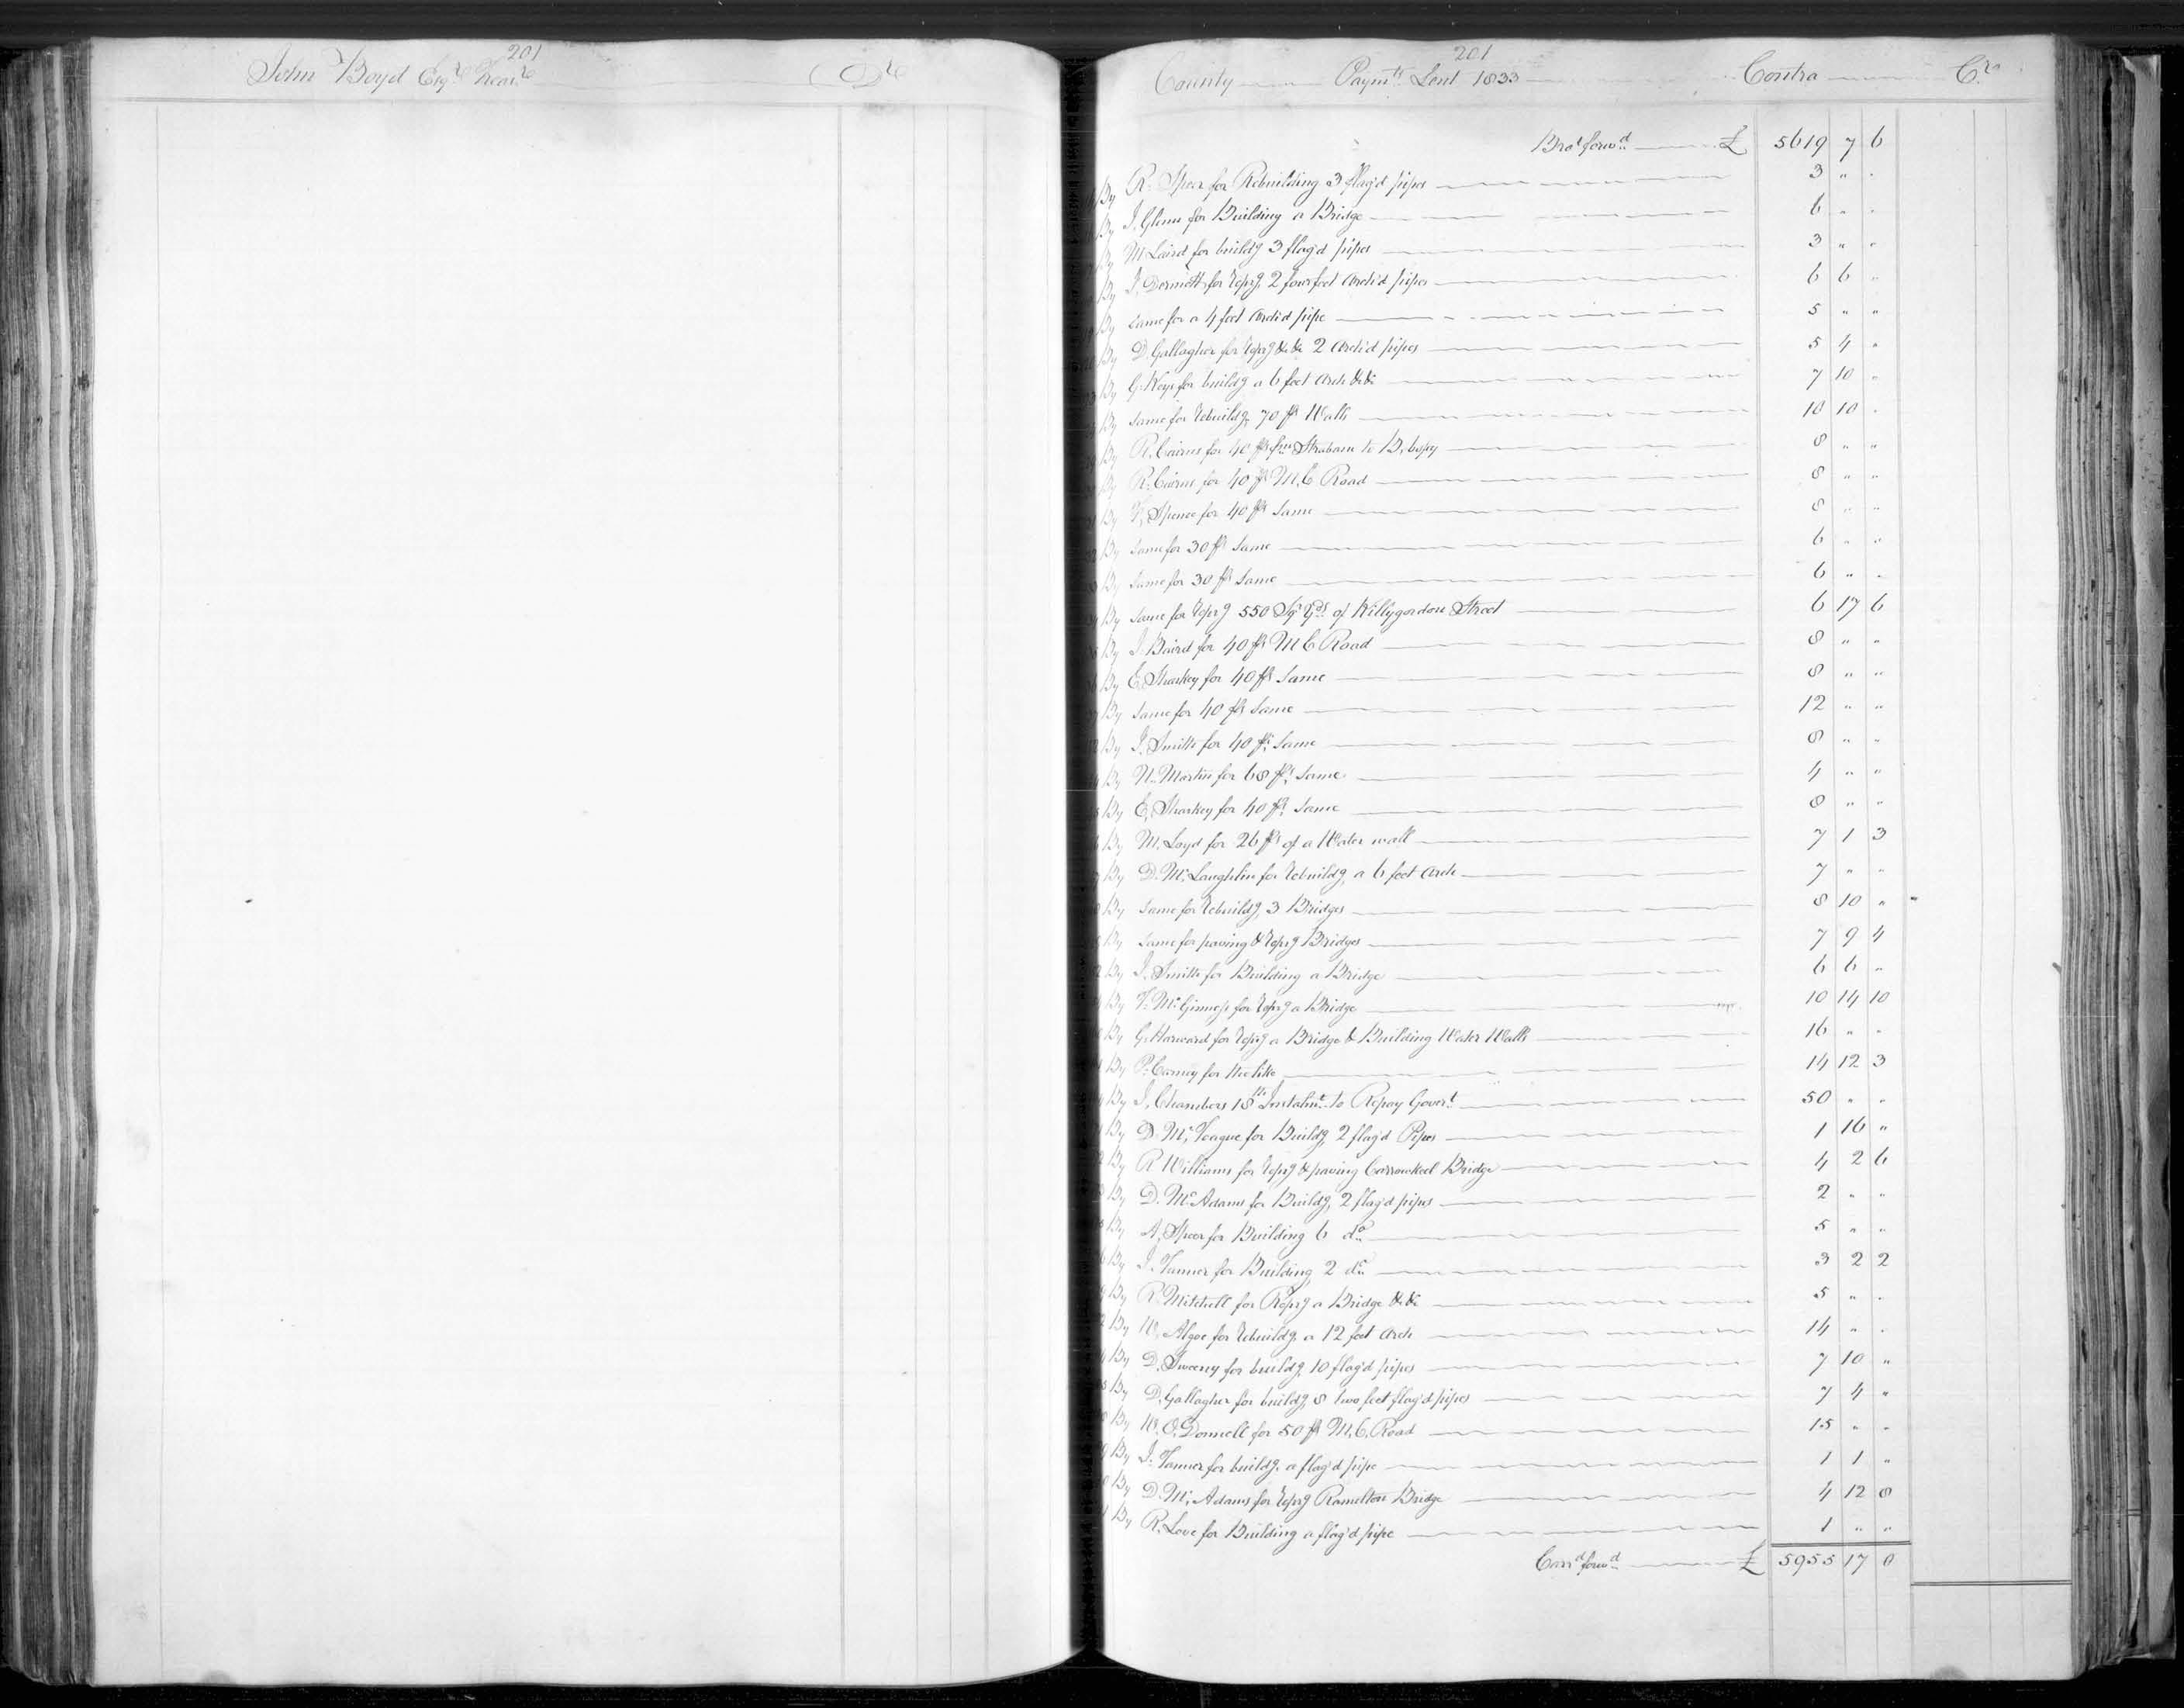 201
John Boyd Esqre Treasre Dr
201
County Paymts Lent 1833 Contra Cr
Brot forwd £ 5619 7 6
By R. Speer for Rebuilding 3 flag'd pipes 3 " "
By J. Glenn for Building a Bridge 6 " "
By M Laird for buildg 3 flag'd pipes 3 " "
By J. Dermott for repg 2 four feet Arch'd pipes 6 6 "
By same for a 4 feet Arch'd pipe 5 " "
By D. Gallagher for repg &c &c 2 Arch'd pipes 5 4 "
By G. Keys for buildg a 6 feet Arch &c &c 7 10 "
By same for rebuildg 70 ps Walls 10 10 "
By R. Cairns for 40 ps from Strabane to B,bofey 8 " "
By R. Cairns for 40 ps M,C Road 8 " "
By Spence for 40 ps same 8 " "
By same for 30 ps same 6 " "
By same for 30 ps same 6 " "
By same for repg 550 Sqr Yds of Killygordon Street 6 17 6
By J. Baird for 40 ps M C Road 8 " "
By E. Sharkey for 40 ps same 8 " "
By same for 40 ps same 12 " "
By J. Smith for 40 ps same 8 " "
By Martin for 68 ps same 4 " "
By E. Sharkey for 40 ps same 8 " "
By M. Loyd for 26 ps of a Water wall 7 1 3
By D. McLaughlin for rebuildg a 6 feet Arch 7 " "
By same for rebuildg 3 Bridges 8 10 "
By same for paving & repg Bridges 7 9 4
By J. Smith for Building a Bridge 6 6 "
By McGinness for repg a Bridge 10 14 10
By G. Harward for repg a Bridge & Building Water Walls 16 " "
By P. Carney for the like 14 12 3
By J. Chambers 18th Instalmt to Repay Govert 50 " "
By D. McTeague for Buildg 2 flag'd Pipes 1 16 "
By R Williams for repg & paving Carrowkeel Bridge 4 2 6
By D. McAdams for Buildg 2 flag'd pipes 2 " "
By A. Speer for Building 6 do 5 " "
By J. Tanner for Building 2 do 3 2 2
By R. Mitchell for Repg a Bridge &c &c 5 " "
By W. Algoe for rebuildg a 12 feet Arch 14 " "
By D. Sweeny for buildg 10 flag'd pipes 7 10 "
By D. Gallagher for buildg 8 two feet flag'd pipes 7 4 "
By W. O,Donnell for 50 ps M,C, Road 15 " "
By J. Tanner for buildg a flag'd pipe 1 1 "
By D. McAdams for repg Ramelton Bridge 4 12 8
By R. Love for Building a flag'd pipe 1 " "
Carrd forwd £ 5955 17 0